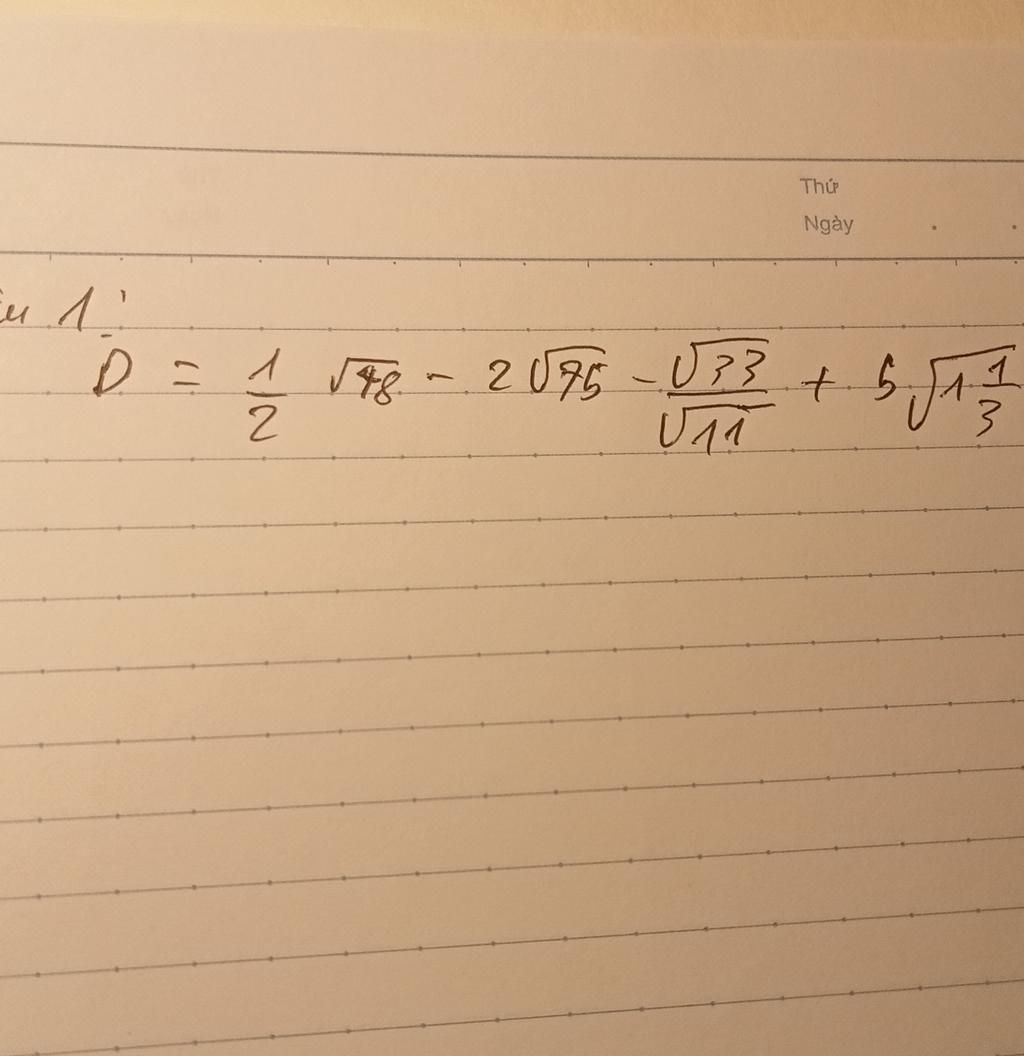 Thứ
Ngày
1:
D = 1/2 √48 - 2√75 - √33/√11 + 5√1 1/3